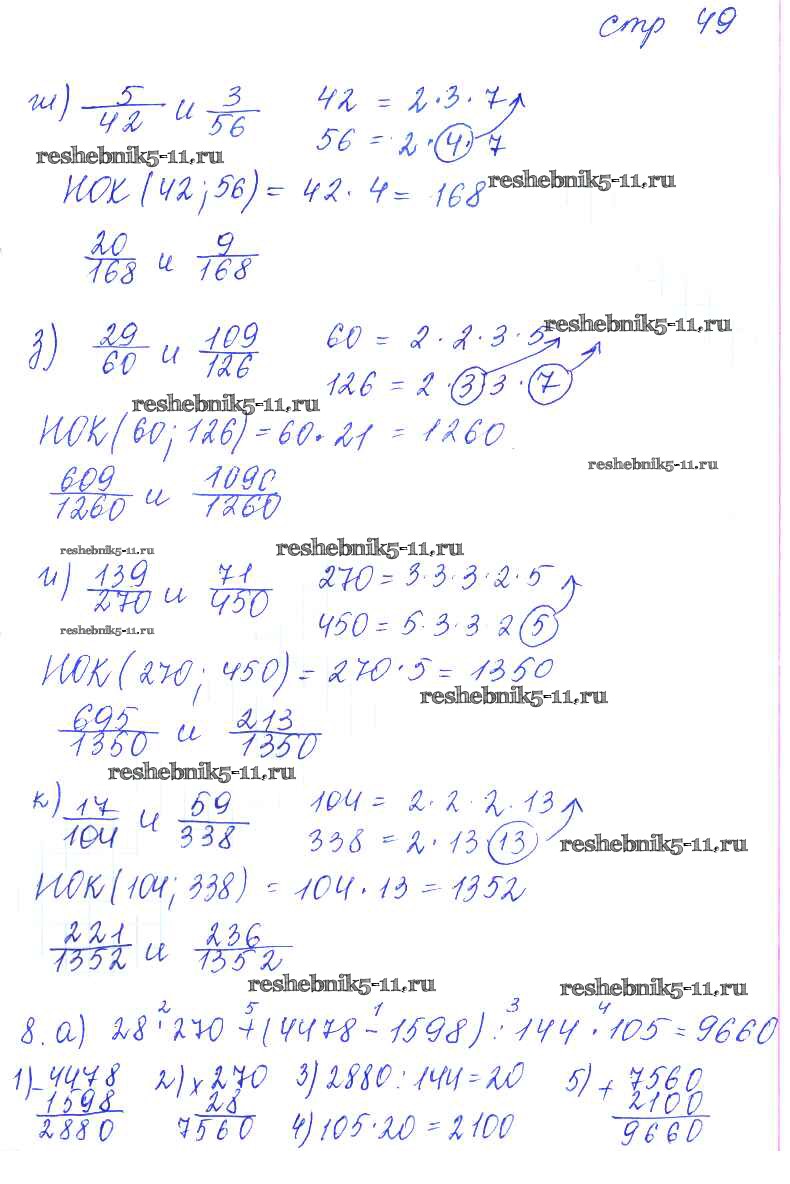 стр 49
ж) 5/42 и 3/56 42 = 2·3·7
56 = 2·4·7
reshebnik5-11.ru
НОК (42; 56) = 42·4 = 168 reshebnik5-11.ru
20/168 и 9/168
з) 29/60 и 109/126 60 = 2·2·3·5 reshebnik5-11.ru
126 = 2·3 3·7
reshebnik5-11.ru
НОК (60; 126) = 60·21 = 1260
reshebnik5-11.ru
609/1260 и 1090/1260
reshebnik5-11.ru reshebnik5-11.ru
и) 139/270 и 71/450 270 = 3·3·3·2·5
450 = 5·3·3 2 5
reshebnik5-11.ru
НОК (270; 450) = 270·5 = 1350
reshebnik5-11.ru
695/1350 и 213/1350
reshebnik5-11.ru
к) 17/104 и 59/338 104 = 2·2·2·13
338 = 2·13 13 reshebnik5-11.ru
НОК (104; 338) = 104·13 = 1352
221/1352 и 236/1352
reshebnik5-11.ru reshebnik5-11.ru
2 5 1 3 4
8. а) 28·270 + (4478 - 1598) : 144·105 = 9660
1) - 4478 2) x 270 3) 2880 : 144 = 20 5) + 7560
1598 28 2100
2880 7560 4) 105·20 = 2100 9660